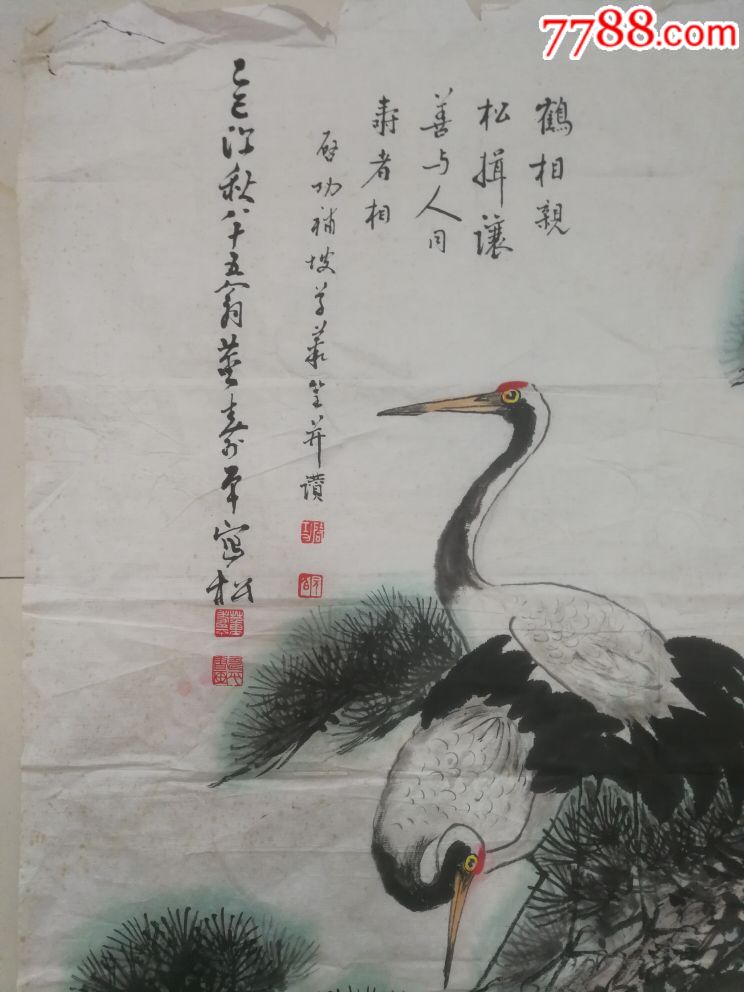 7788.com
鶴相親
松揖讓
善与人同
壽者相
啓功補坡草叢筀并讚
己巳深秋八十五翁董壽平寫松